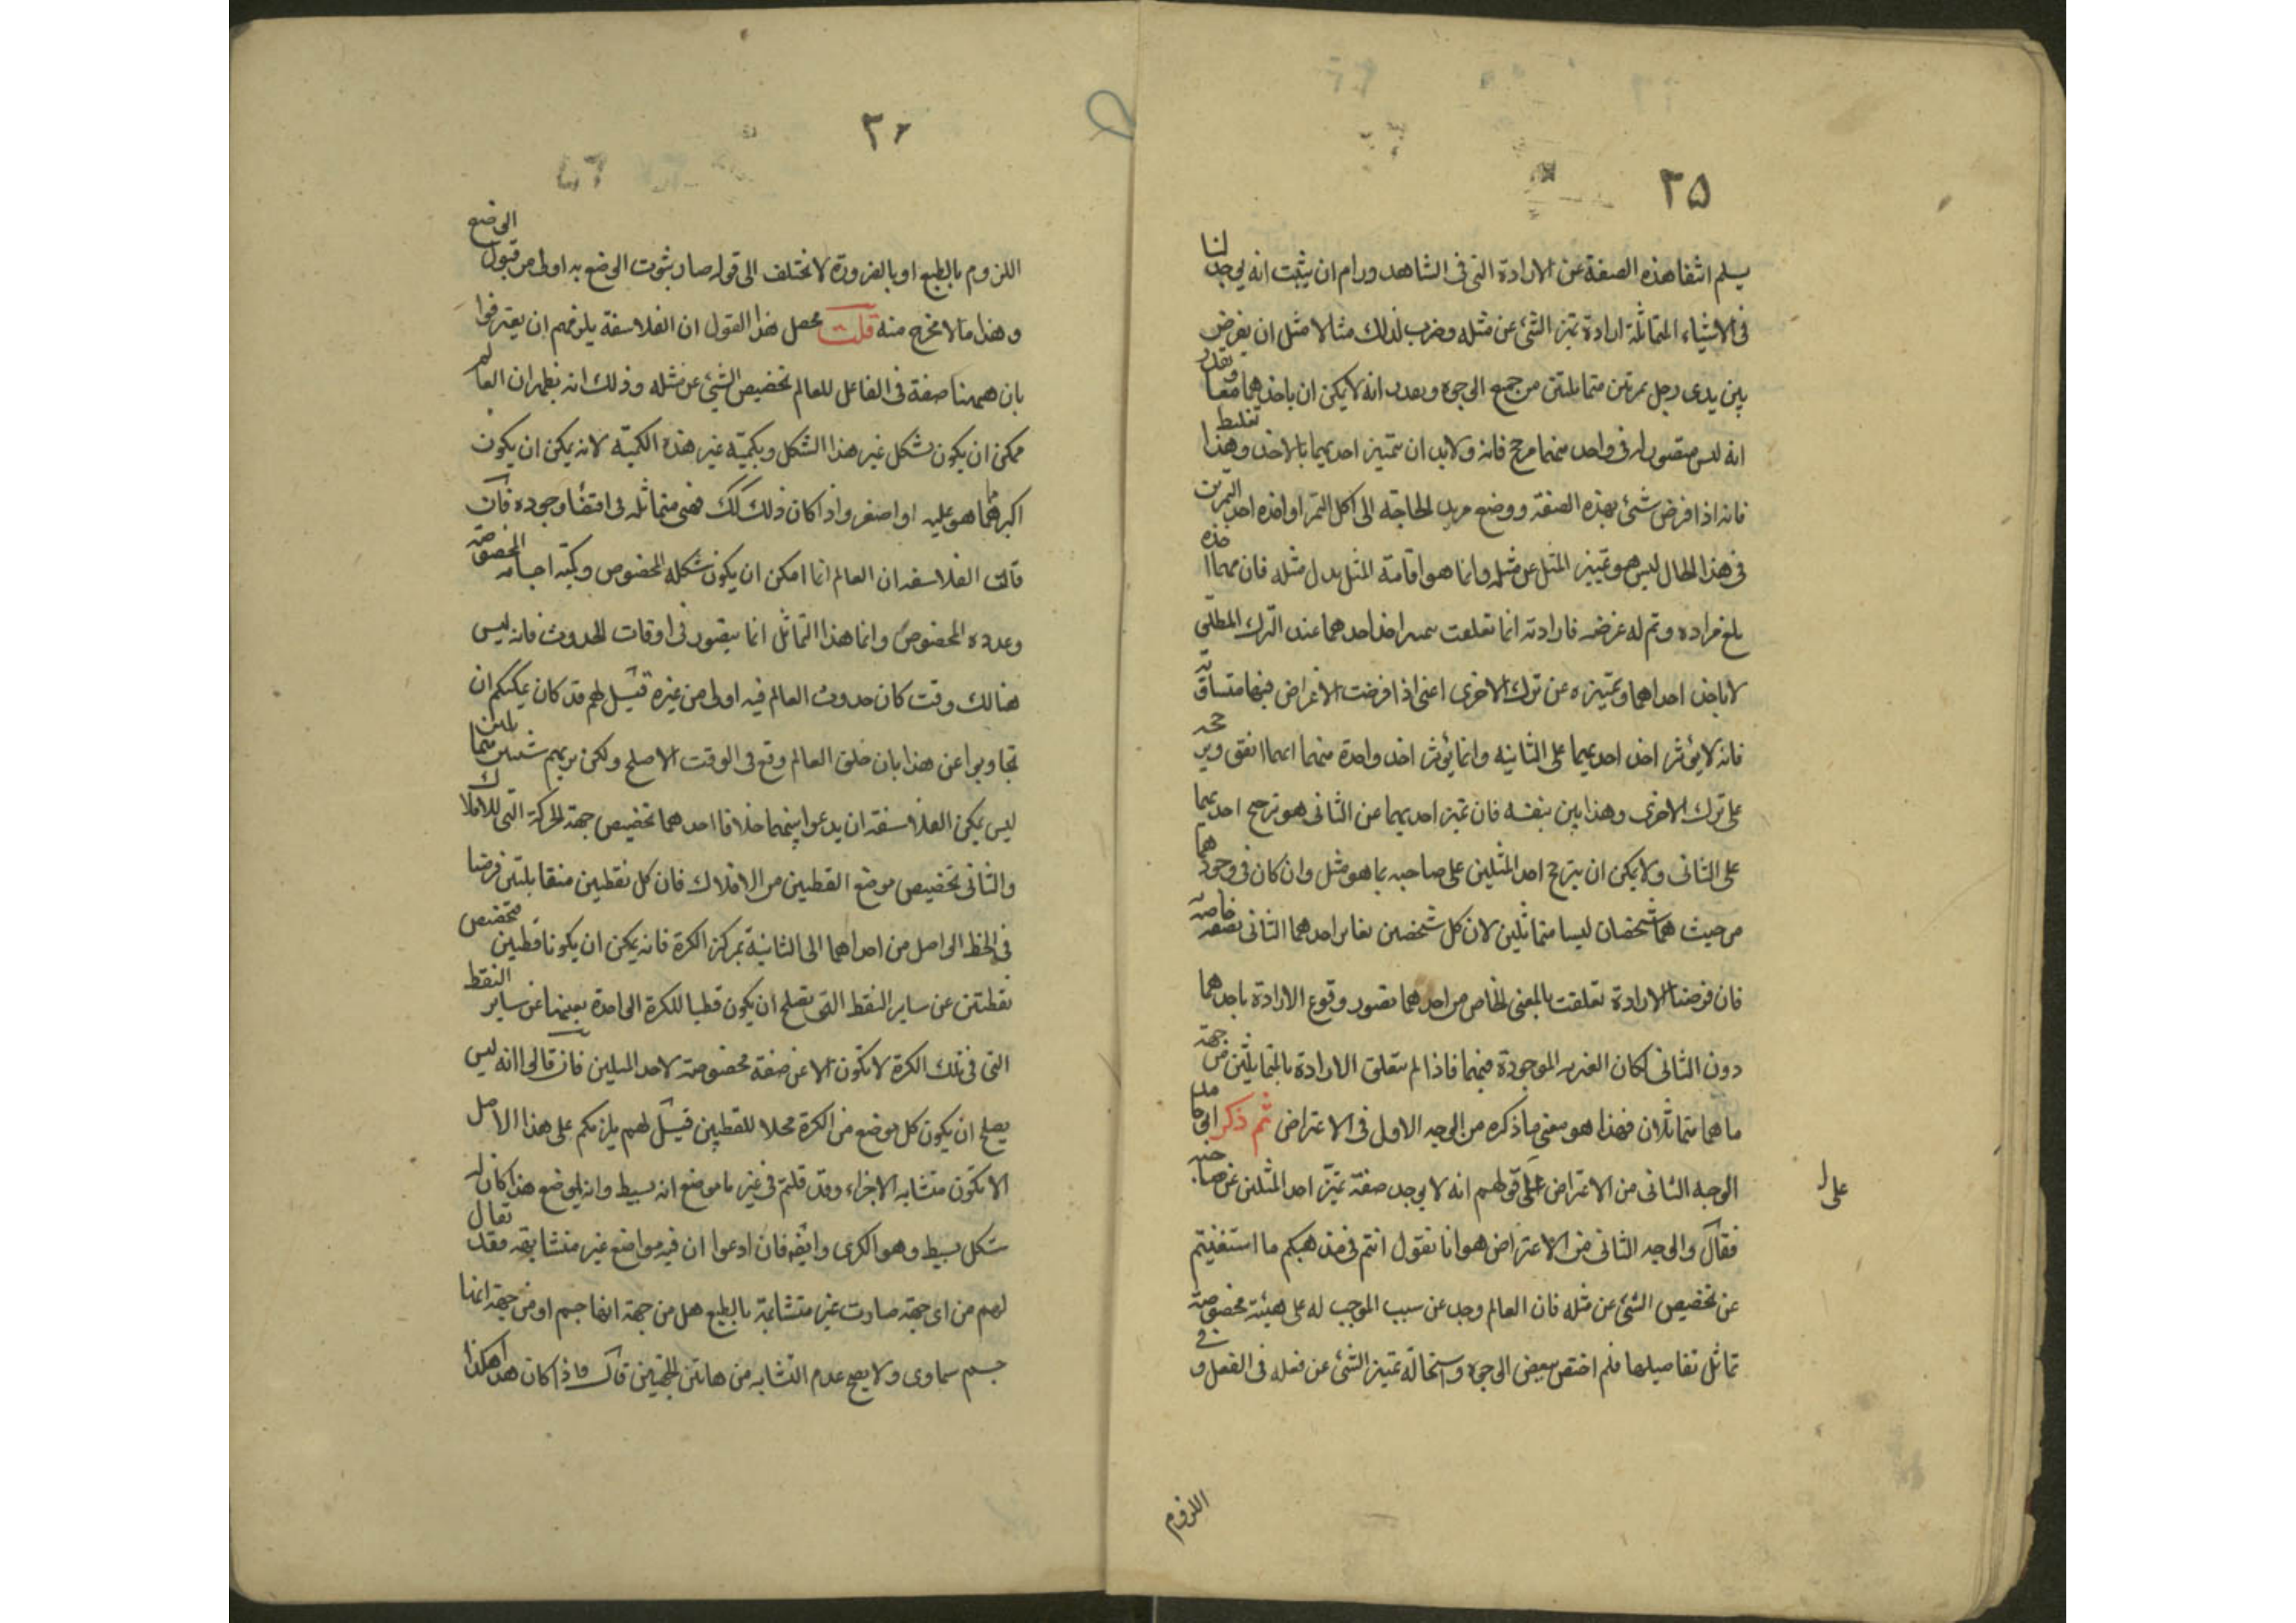 ٣٥
يسلم انتفا هذه الصفة عن الارادة التى فى الشاهد ورام ان يثبت انه يوجد لنا
فى الاشياء المتماثلة ارادة تميز الشئ عن مثله وضرب لذلك مثالا مثل ان يفرض
بين يدى رجل تمرتين متماثلتين من جميع الوجوه ويقدر انه لا يمكن ان ياخذهما معا ويقدر
انه ليس يتصور له فى واحد منهما مرجح فانه ولابد ان ستميز احديهما بالاخذ وهذا تغليط
فانه اذا فرض شئ بهذه الصفة ووضع مريد لحاجته الى اكل التمر او اخذه احد التمرتين
فى هذا الحال ليس هو تمييز المثل عن مثله وانما هو اقامة المثل بدل مثله فان مهما اخذه
بلغ مراده وتم له غرضه فارادته انما تعلقت بتميز اخذ احدهما عند الترك المطلق
لا باخذ احداهما وتمييزه عن ترك الاخرى اعنى اذا فرضت الاغراض فيهما متساوية
فانه لا يؤثر اخذ احديهما على الثانيه وانما يؤثر اخذ واحدة منهما ايهما اتفق ويرجحه
على ترك الاخرى وهذا بين بنفسه فان تميز احديهما عن الثانى هو ترجح احديهما
على الثانى ولا يمكن ان يترجح احد المثلين على صاحبه بما هو مثل وان كان فى وجودهما
من حيث هما شخصان ليسا متماثلين لان كل شخصين يغاير احدهما الثانى بصفة خاصة
فان فرضنا الارادة تعلقت بالمعنى الخاص من احدهما تصور وقوع الارادة باحدهما
دون الثانى لمكان الغيريه الموجودة فيهما فاذا لم تتعلق الارادة بالمتماثلين من جهة
ما هما متماثلان فهذا هو معنى ما ذكره من الوجه الاول فى الاعتراض ثم ذكر ابو حامد
الوجه الثانى من الاعتراض على قولهم انه لا يوجد صفة تميز احد المثلين عن صاحبه
على
فقال والوجه الثانى من الاعتراض هو انا نقول انتم فى مذهبكم ما استغنيتم
عن تخصيص الشئ عن مثله فان العالم وجد عن سبب الموجب له على هيئة مخصوصة
تماثل تفاصيلها فلم اختص ببعض الوجوه واستحالة تميز الشئ عن فعله فى الفعل و فى
اللزوم
٣٦
اللزوم بالطبع او بالضرورة لا تختلف الى قوله صار ثبوت الوضع به اولى من قبول الوضع
وهذا ما لا مخرج منه قلت محصل هذا القول ان الفلاسفة يلزمهم ان يعترفوا
بان ههنا صفة فى الفاعل للعالم تخصيص الشئ عن مثله وذلك انه يظهر ان العالم
ممكن ان يكون بشكل غير هذا الشكل وبكميّة غير هذه الكميّة لانه يمكن ان يكون
اكبر مما هو عليه او اصغر واذا كان ذلك كك فهى متماثله فى اقتضاء وجوده فان
قالت الفلاسفه ان العالم انما امكن ان يكون شكله المخصوص وكميّة اجسامه المخصوصة
وعدده المخصوص وانما هذا التماثل انما يتصور فى اوقات الحدوث فانه ليس
هنالك وقت كان حدوث العالم فيه اولى من غيره قيل لهم قد كان يمكنكم ان
تجاوبوا عن هذا بان خلق العالم وقع فى الوقت الاصلح ولكن نريهم شيئين متماثلين
ليس يمكن الفلاسفة ان يدعوا بينهما خلافا احدهما تخصيص جهة الحركة التى للافلاك
والثانى تخصيص موضع القطبين من الافلاك فان كل نقطتين متقابلتين فرضنا
فى الخط الواصل من احداهما الى الثانية بمركز الكرة فانه يمكن ان يكونا قطبين فتخصيص
نقطتين عن ساير النقط التى تصلح ان يكون قطبا للكرة الواحدة بعينها عن ساير النقط
التى فى تلك الكرة لا تكون الا عن صفة مخصوصة لاحد المثلين فان قالوا انه ليس
يصلح ان يكون كل موضع من الكرة محلا للقطبين قيل لهم يلزمكم على هذا الاصل
الا تكون متشابه الاجزاء وقد قلتم فى غير ما موضع انه بسيط وانه لموضع هذا كان له
شكل بسيط وهو الكرى وايضه فان ادعوا ان فيه مواضع غير متشابهه فقد يقال
لهم من اى جهة صارت غير متشابهة بالطبع هل من جهة انها جسم او من جهة انها
جسم سماوى ولا يصح عدم التشابه من هاتين الجهتين قال واذا كان هذا هكذا